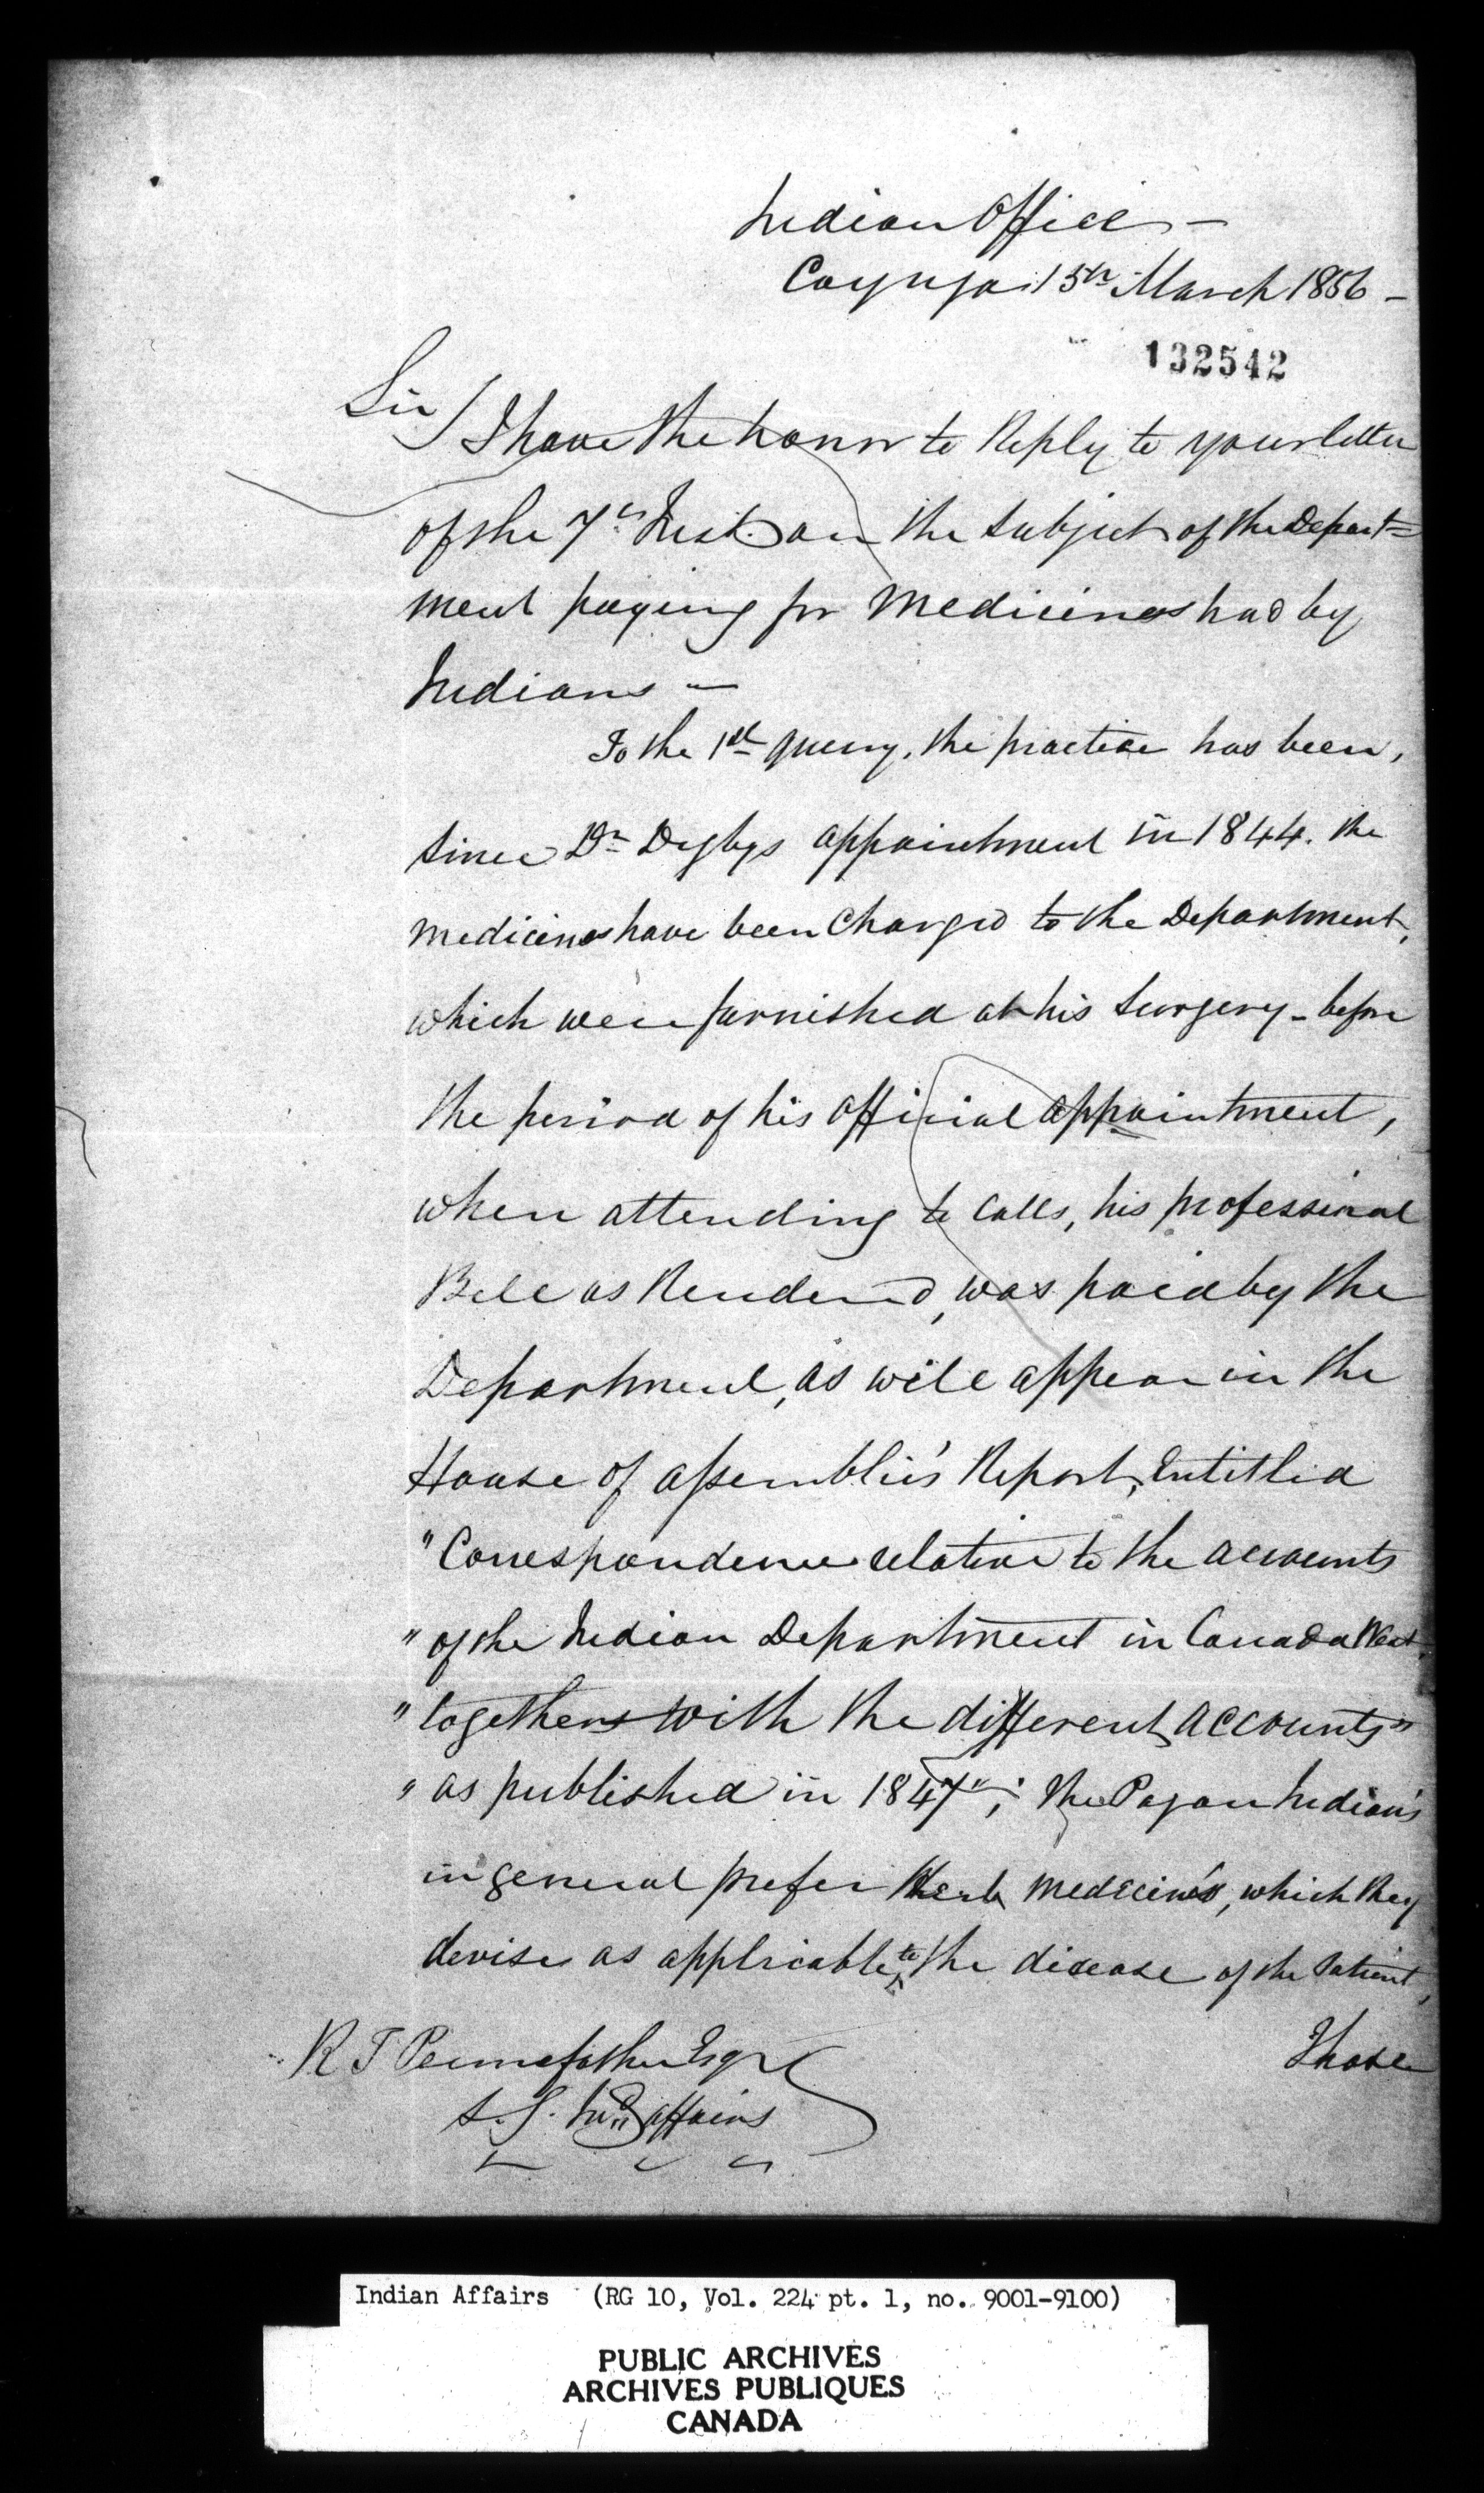 Indian Office –
Cayuga 15th March 1856 –
132542
Sir / I have the honor to Reply to your letter
of the 7th Inst. on the subject of the Depart=
ment paying for Medicines had by
Indians –
To the 1st query, the practice has been,
since Dr Digbys appointment in 1844. the
medicines have been Charged to the Department,
which were furnished at his Surgery – before
the period of his official appointment,
when attending to Calls, his professional
Bill as Rendered, was paid by the
Department, as will appear in the
House of Assemblie's Report, Entitled
"Correspondence relative to the accounts
" of the Indian Department in Canada West,
" together with the different accounts"
" as published in 1847"; the Pagan Indian's
in general prefer Herb medecin's, which they
devise as applicable to the disease of the Patient,
Those
R T Pennefather Esqr
S. G. Ind Affairs
Indian Affairs (RG 10, Vol. 224 pt. 1, no. 9001-9100)
PUBLIC ARCHIVES
ARCHIVES PUBLIQUES
CANADA